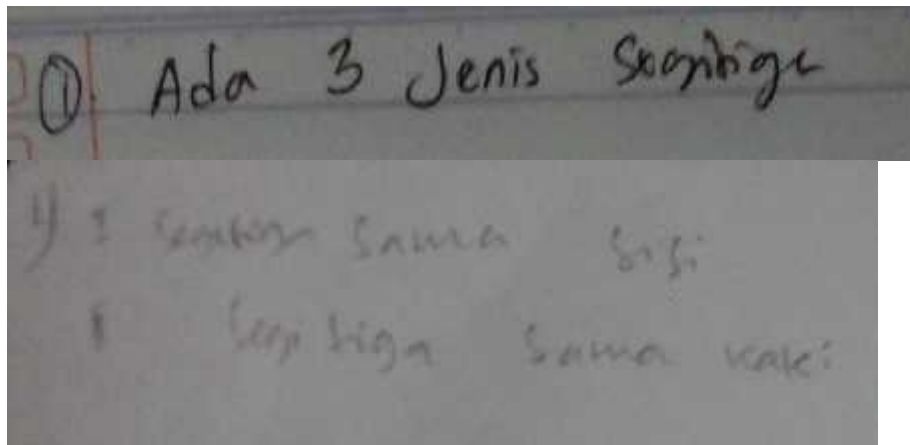 ① Ada 3 Jenis Segitiga
1) 1 Segitiga Sama Sisi
1 Segitiga Sama kaki